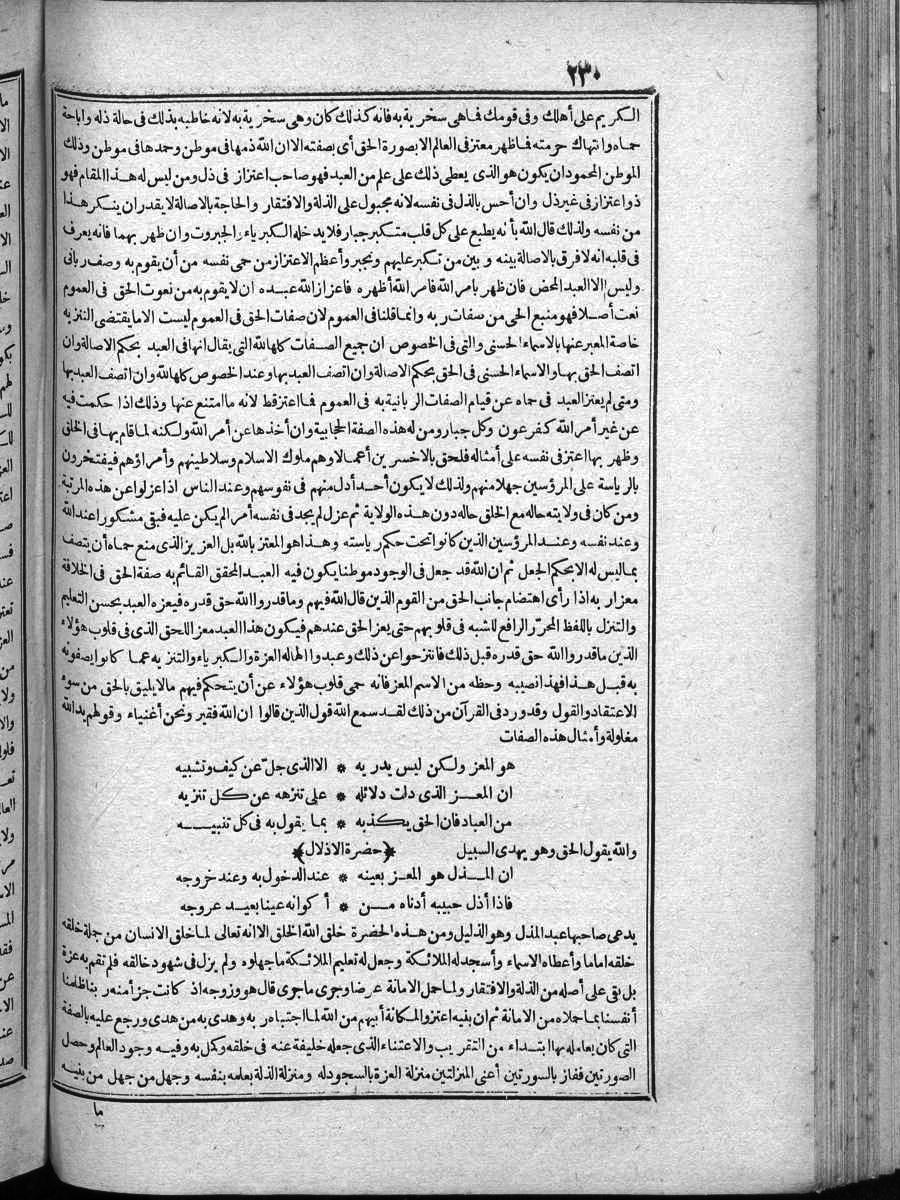 ٢٣٠
الكريم على أهلك وفى قومك فاهى سخرية به فانه كذلك كان وهى سخرية به لانه خاطبه بذلك فى حالة ذله واباحة
حماه وانتهاك حرمته فاظهر معتز فى العالم الا بصورة الحق أى بصفته الا ان الله ذمها فى موطن وحمدها فى موطن وذلك
الموطن المحمود ان يكون هو الذى يعطى ذلك على علم من العبد فهو صاحب اعتزاز فى ذل ومن ليس له هذا المقام فهو
ذو اعتزاز فى غير ذل وان أحس بالذل فى نفسه لانه مجبول على الذلة والافتقار والحاجة بالاصالة لا يقدر ان ينكر هذا
من نفسه ولذلك قال الله بأنه يطبع على كل قلب متكبر جبار فلا يدخله الكبرياء والجبروت وان ظهر بهما فانه يعرف
فى قلبه انه لا فرق بالاصالة بينه وبين من تكبر عليهم وتجبر وأعظم الاعتزاز من حمى نفسه من أن يقوم به وصف ربانى
وليس الا العبد المحض فان ظهر بامر الله فامر الله أظهره فاعزاز الله عبده ان لا يقوم به من نعوت الحق فى العموم
نعت أصلا فهو منيع الحمى من صفات ربه وانما قلنا فى العموم لان صفات الحق فى العموم ليست الا ما يقتضى التنزيه
خاصة المعبر عنها بالاسماء الحسنى والتى فى الخصوص ان جميع الصفات كلها لله التى يقال انها فى العبد بحكم الاصالة وان
اتصف الحق بها والاسماء الحسنى فى الحق بحكم الاصالة وان اتصف العبد بها وعند الخصوص كلها لله وان اتصف العبد بها
ومتى لم يعتز العبد فى حماه عن قيام الصفات الربانية به فى العموم فما اعتز قط لانه ما امتنع عنها وذلك اذا حكمت فيه
عن غير أمر الله كفرعون وكل جبار ومن له هذه الصفة الحجابية وان أخذها عن أمر الله ولكنه لما قام بها فى الخلق
وظهر بها اعتز فى نفسه على أمثاله فلحق بالاخسرين أعمالا وهم ملوك الاسلام وسلاطينهم وأمراؤهم فيفتخرون
بالرياسة على المرؤسين جهلا منهم ولذلك لا يكون أحد أذل منهم فى نفوسهم وعند الناس اذا عزلوا عن هذه المرتبة
ومن كان فى ولايته حاله مع الخلق حاله دون هذه الولاية ثم عزل لم يجد فى نفسه أمرا لم يكن عليه فبقى مشكورا عند الله
وعند نفسه وعند المرؤسين الذين كانوا تحت حكم رياسته وهذا هو المعتز بالله بل العزيز الذى منع حماه أن يتصف
بما ليس له الا بحكم الجعل ثم ان الله قد جعل فى الوجود موطنا يكون فيه العبد المحقق القائم به صفة الحق فى الخلافة
معزا ربه اذا رأى اهتضام جانب الحق من القوم الذين قال الله فيهم وما قدروا الله حق قدره فيعزه العبد بحسن التعليم
والتنزل باللفظ المحرر الرافع للشبه فى قلوبهم حتى يعز الحق عندهم فيكون هذا العبد معزا للحق الذى فى قلوب هؤلاء
الذين ما قدروا الله حق قدره قبل ذلك فانتزحوا عن ذلك وعبدوا الها له العزة والكبرياء والتنزيه عما كانوا يصفونه
به قبل هذا فهذا نصيبه وحظه من الاسم المعز فانه حمى قلوب هؤلاء عن أن يتحكم فيهم ما لا يليق بالحق من سوء
الاعتقاد والقول وقد ورد فى القرآن من ذلك لقد سمع الله قول الذين قالوا ان الله فقير ونحن أغنياء وقولهم يد الله
مغلولة وأمثال هذه الصفات
هو المعز ولكن ليس يدريه * الا الذى جل عن كيف وتشبيه
ان المعز الذى دلت دلائله * على تنزهه عن كل تنزيه
من العباد فان الحق يكذبه * بما يقول به فى كل تنبيه
والله يقول الحق وهو يهدى السبيل ﴿حضرة الاذلال﴾
ان المذل هو المعز بعينه * عند الدخول به وعند خروجه
فاذا أذل حبيبه أدناه من * أكوانه عينا بعيد عروجه
يدعى صاحبها عبد المذل وهو الذليل ومن هذه الحضرة خلق الله الخلق الا انه تعالى لما خلق الانسان من جملة خلقه
خلقه اماما وأعطاه الاسماء وأسجد له الملائكة وجعل له تعليم الملائكة ما جهلوه ولم يزل فى شهود خالقه فلم تقم به عزة
بل بقى على أصله من الذلة والافتقار ولما حمل الامانة عرضا وجرى ما جرى قال هو وزوجه اذ كانت جزأ منه ربنا ظلمنا
أنفسنا بما حملاه من الامانة ثم ان بنيه اعتزوا لمكانة أبيهم من الله لما اجتباه ربه وهدى به من هدى ورجع عليه بالصفة
التى كان يعامله بها ابتداء من التقريب والاعتناء الذى جعله خليفة عنه فى خلقه وكمل به وفيه وجود العالم وحصل
الصورتين ففاز بالسورتين أعنى المنزلتين منزلة العزة بالسجود له ومنزلة الذلة بعلمه بنفسه وجهل من جهل من بنيه
ما